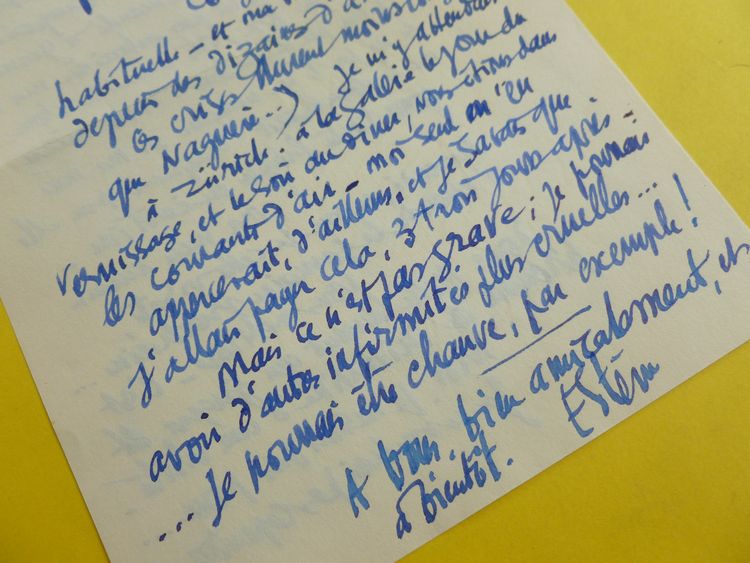 habituelle – et ma
depuis des dizaines d'a
les crises durent moins
que naguère...) Je m'y attendais
à Zürich : à la galerie le jour du
vernissage, et le soir au dîner, nous étions dans
les courants d'air – moi seul m'en
apercevait, d'ailleurs, et je savais que
j'allais payer cela, 3 trois jours après –
Mais ce n'est pas grave ; je pourrais
avoir d'autres infirmités plus cruelles...
... Je pourrais être chauve, par exemple !
A vous, bien amicalement, et
à bientôt.